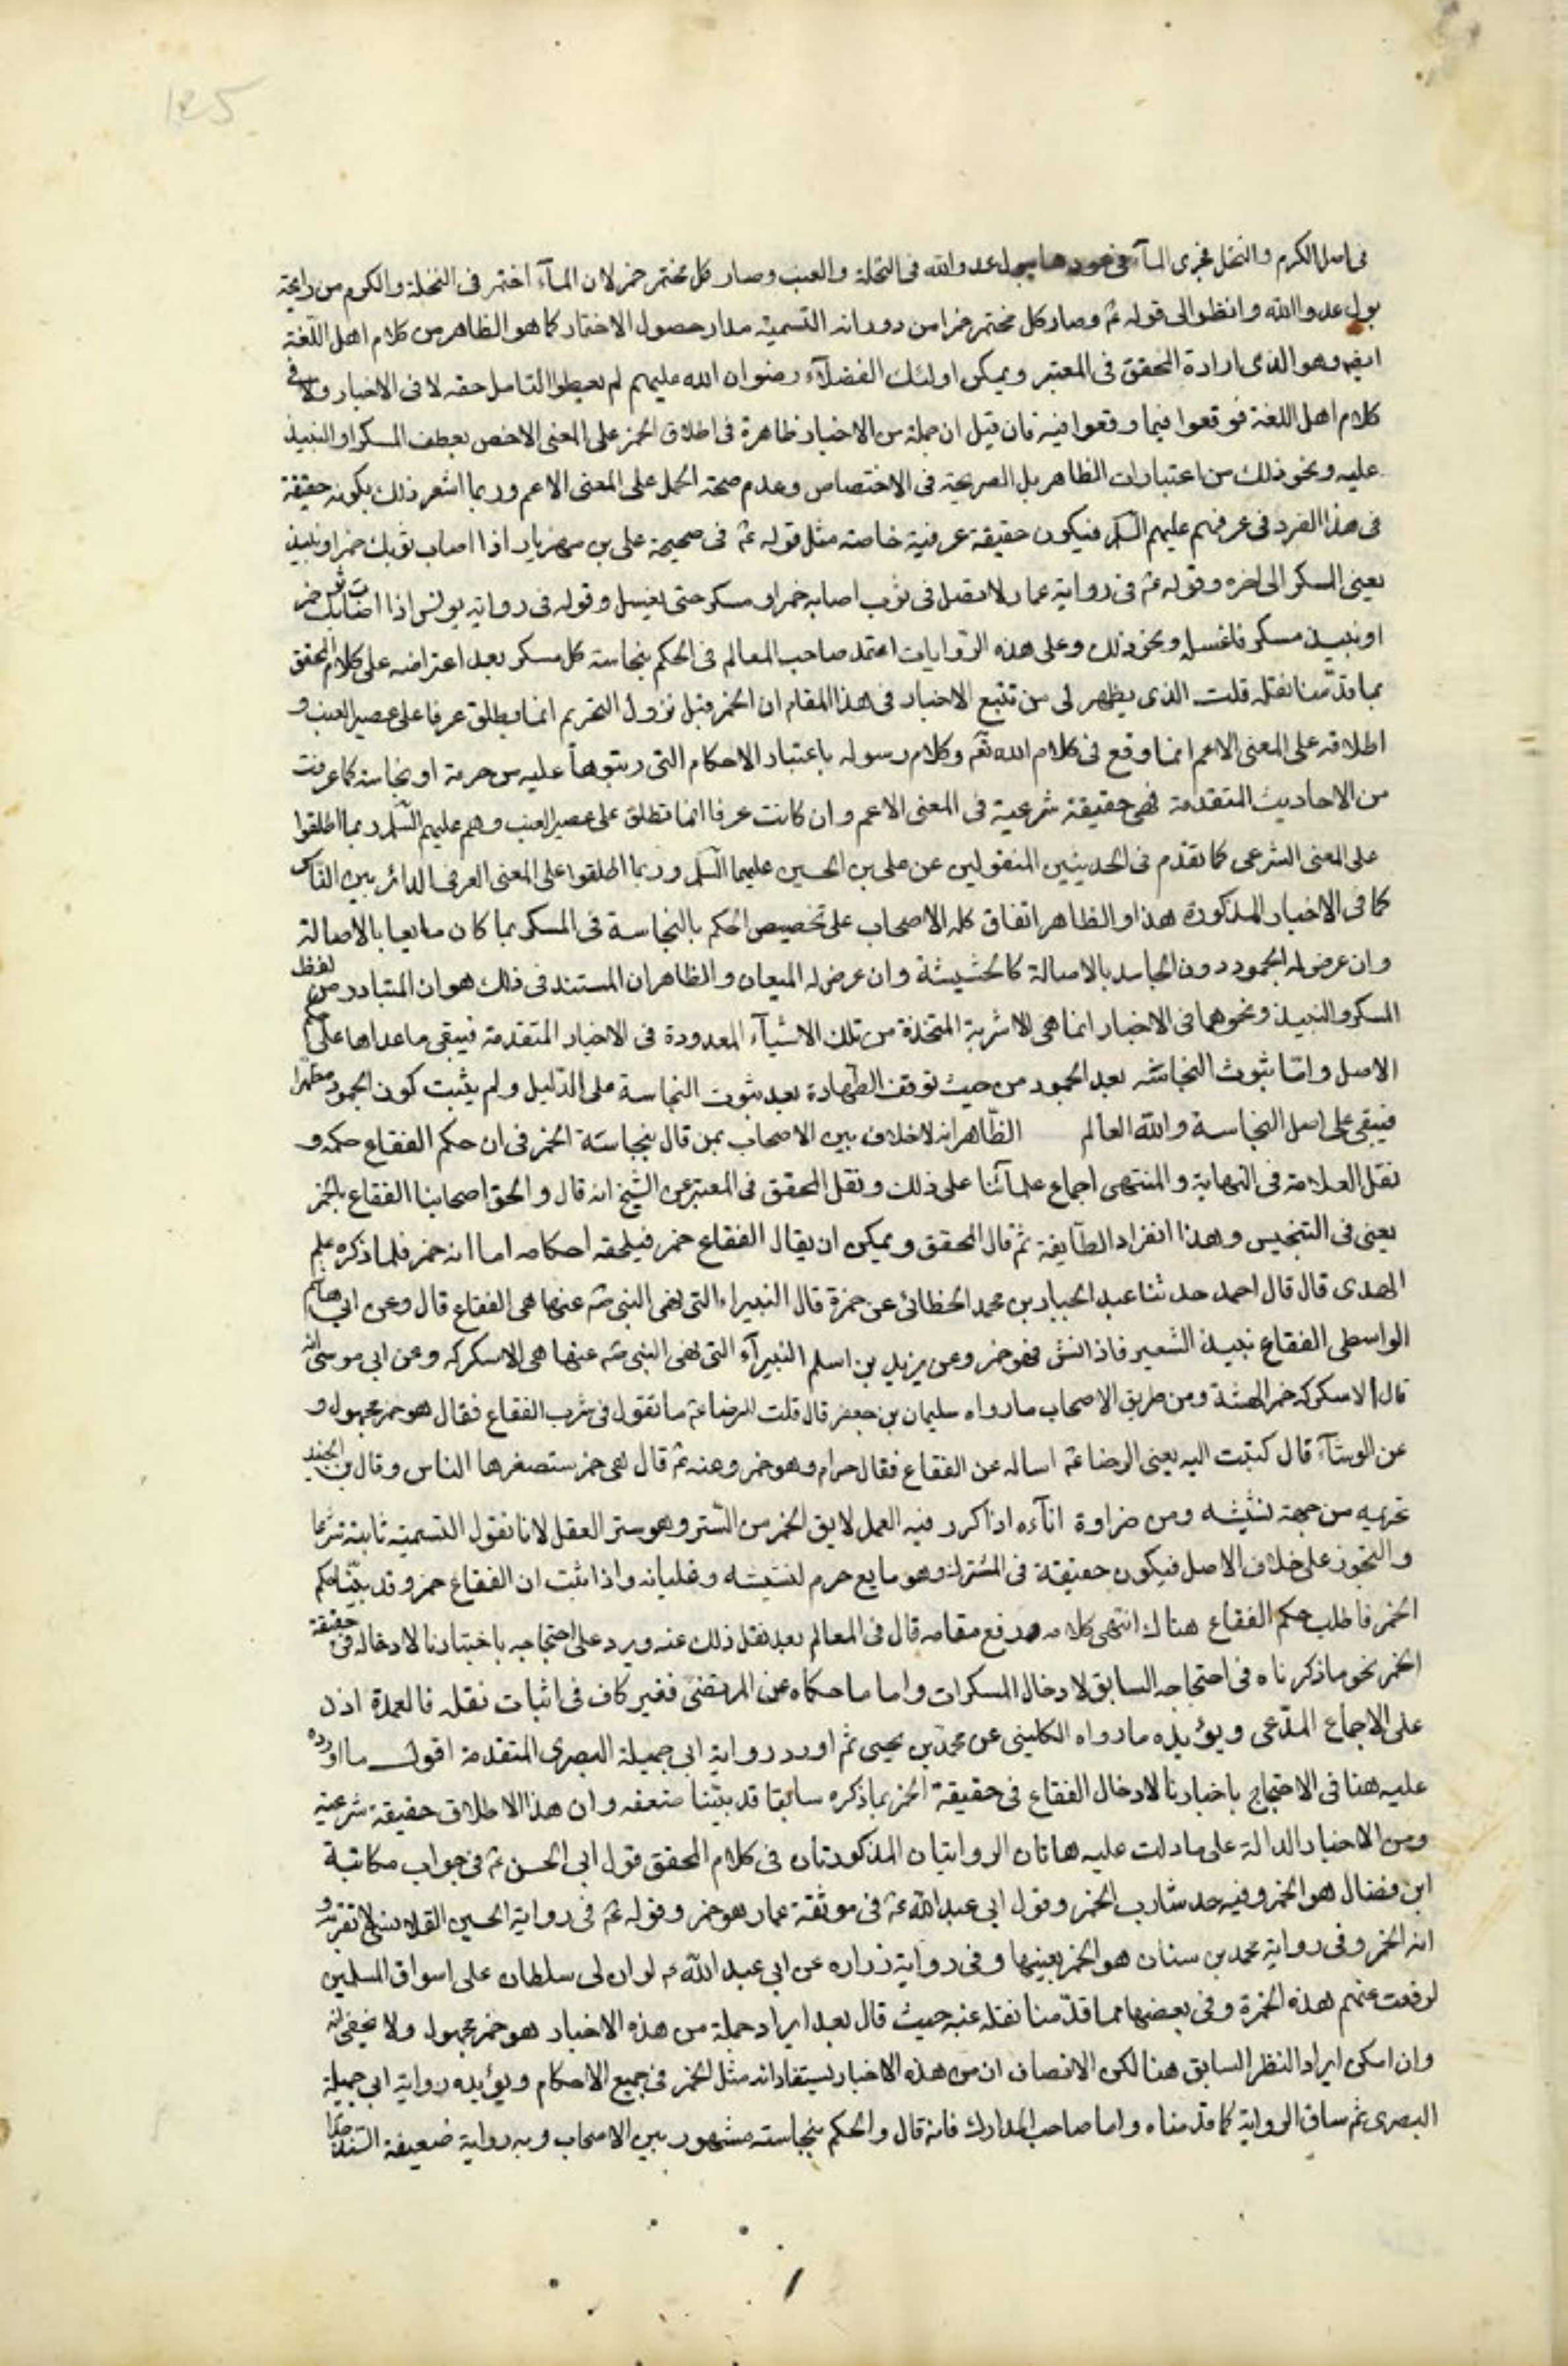 في اصل الكرم والنخل فجرى المآء في عودها ببول عدو الله في النخلة والعنب وصار كل مختمر خمر لان المآء اختمر في النخلة والكرم من رايحة
بول عدو الله وانظر الى قوله ع وصار كل مختمر خمرا من دورانه التسمية مدار حصول الاختمار كما هو الظاهر من كلام اهل اللغة
ايض وهو الذى ارادة المحقق في المعتبر ويمكن اولئك الفضلآء رضوان الله عليهم لم يعطوا التامل حقه لا في الاخبار ولا في
كلام اهل اللغة فوقعوا فيما وقعوا فيه فان قيل ان جملة من الاخبار ظاهرة في اطلاق الخمر على المعنى الاخص بعطف المسكر او النبيذ
عليه ونحو ذلك من اعتبارات الظاهر بل الصريحة في الاختصاص وعدم صحة الحمل على المعنى الاعم وربما اشعر ذلك بكونه حقيقة
في هذا الفرد في عرفهم عليهم السلم فيكون حقيقة عرفية خاصة مثل قوله ع في صحيحة على بن مهزيار اذا اصاب ثوبك خمر او نبيذ
يعنى المسكر الى اخره وقوله ع في رواية عمار لا تصل في ثوب اصابه خمر او مسكر حتى يغسل وقوله في رواية يونس اذا اصاب ثوبك خمر
او نبيذ مسكر فاغسله ونحو ذلك وعلى هذه الروايات اعتمد صاحب المعالم في الحكم بنجاسة كل مسكر بعد اعتراضه على كلام المحقق
بما قدمنا نقله قلت الذى يظهر لى من تتبع الاخبار في هذا المقام ان الخمر قبل نزول التحريم انما يطلق عرفا على عصير العنب و
اطلاقه على المعنى الاعم انما وقع في كلام الله تعم وكلام رسوله باعتبار الاحكام التى رتبوها عليه من حرمة او نجاسة كما عرفت
من الاحاديث المتقدمة فهى حقيقة شرعية في المعنى الاعم وان كانت عرفا انما تطلق على عصير العنب وهم عليهم السلم ربما اطلقوا
على المعنى الشرعى كما تقدم في الحديثين المنقولين عن على بن الحسين عليهما السلم وربما اطلقوا على المعنى العرفي الدائر بين الناس
كما في الاخبار المذكورة هذا والظاهر اتفاق كله الاصحاب على تخصيص الحكم بالنجاسة في المسكر بما كان مايعا بالاصالة
وان عرض له الجمود دون الجامد بالاصالة كالحشيشة وان عرض له الميعان والظاهر ان المستند في ذلك هو ان المتبادر من لفظ
المسكر والنبيذ ونحوهما في الاخبار انما هى الاشربة المتخذة من تلك الاشيآء المعدودة في الاخبار المتقدمة فيبقى ما عداها على
الاصل واما ثبوت النجاسة بعد الجمود من حيث توقف الطهارة بعد ثبوت النجاسة على الدليل ولم يثبت كون الجمود مطهرا
فيبقى على اصل النجاسة والله العالم الظاهر انه لا خلاف بين الاصحاب بمن قال بنجاسة الخمر في ان حكم الفقاع حكمه و
نقل العلامة في النهاية والمنتهى اجماع علمآئنا على ذلك ونقل المحقق في المعتبر عن الشيخ انه قال والحق اصحابنا الفقاع بالخمر
يعنى في التنجيس وهذا انفراد الطآيفة ثم قال المحقق ويمكن ان يقال الفقاع خمر فيلحقه احكامه اما انه خمر فلما ذكره علم
الهدى قال قال احمد حدثنا عبد الجبار بن محمد الخطائى عن حمزة قال الغبيراء التى نهى النبى ص عنها هى الفقاع قال وعن ابي هاشم
الواسطى الفقاع نبيذ الشعير فاذا نش فهو خمر وعن يزيد بن اسلم الغبيرآء التى نهى النبى ص عنها هى الاسكركه وعن ابى موسى انه
قال الاسكركه خمر الحبشة ومن طريق الاصحاب ما رواه سليمان بن جعفر قال قلت للرضا ع ما تقول في شرب الفقاع فقال هو خمر مجهول و
عن الوشآء قال كتبت اليه يعنى الرضا ع اساله عن الفقاع فقال حرام وهو خمر وعنه ع قال هى خمر ستصغرها الناس وقال بن الجنيد
تحريمه من جهة نشيشه ومن ضراوة انآءه اذا كرر فيه العمل لا يق الخمر من الستر وهو ستر العقل لانا نقول التسمية ثابتة شرعا
والتجوز على خلاف الاصل فيكون حقيقة في المشترك وهو مايع حرم لنشيشه وغليانه واذا ثبت ان الفقاع خمر وقد بينا حكم
الخمر فاطلب حكم الفقاع هناك انتهى كلامه رفع مقامه قال في المعالم بعد نقل ذلك عنه ويرد على احتجاجه باخبارنا لادخاله في حقيقة
الخمر نحو ما ذكرناه في احتجاجه السابق لادخال المسكرات واما ما حكاه عن المرتضى فغير كاف في اثبات نقله فالعمدة اذن
على الاجماع المدعى ويؤيده ما رواه الكلينى عن محمد بن يحيى ثم اورد رواية ابى جميلة البصرى المتقدمة اقول ما اورده
عليه هنا في الاحتجاج باخبارنا لادخال الفقاع في حقيقة الخمر بما ذكره سابقا قد بينا ضعفه وان هذا الاطلاق حقيقة شرعية
ومن الاخبار الدالة على ما دلت عليه هاتان الروايتان المذكورتان في كلام المحقق قول ابى الحسن ع في جواب مكاتبة
ابن فضال هو الخمر وفيه حد شارب الخمر وقول ابى عبد الله ع في موثقة عمار هو خمر وقوله ع في رواية الحسين القلانسى لا تقربه و
انه الخمر وفى رواية محمد بن سنان هو الخمر بعينها وفى رواية زراره عن ابى عبد الله ع لو ان لى سلطان على اسواق المسلمين
لرفعت عنهم هذه الخمرة وفى بعضها مما قدمنا نقله عنه حيث قال بعد ايراد جملة من هذه الاخبار هو خمر مجهول ولا يخفى انه
وان امكن ايراد النظر السابق هنا لكن الانصاف ان من هذه الاخبار يستفاد انه مثل الخمر في جميع الاحكام ويؤيده رواية ابى جميلة
البصرى ثم ساق الرواية كما قدمناه واما صاحب المدارك فانه قال والحكم بنجاسته مشهور بين الاصحاب وبه رواية ضعيفة السند جدا